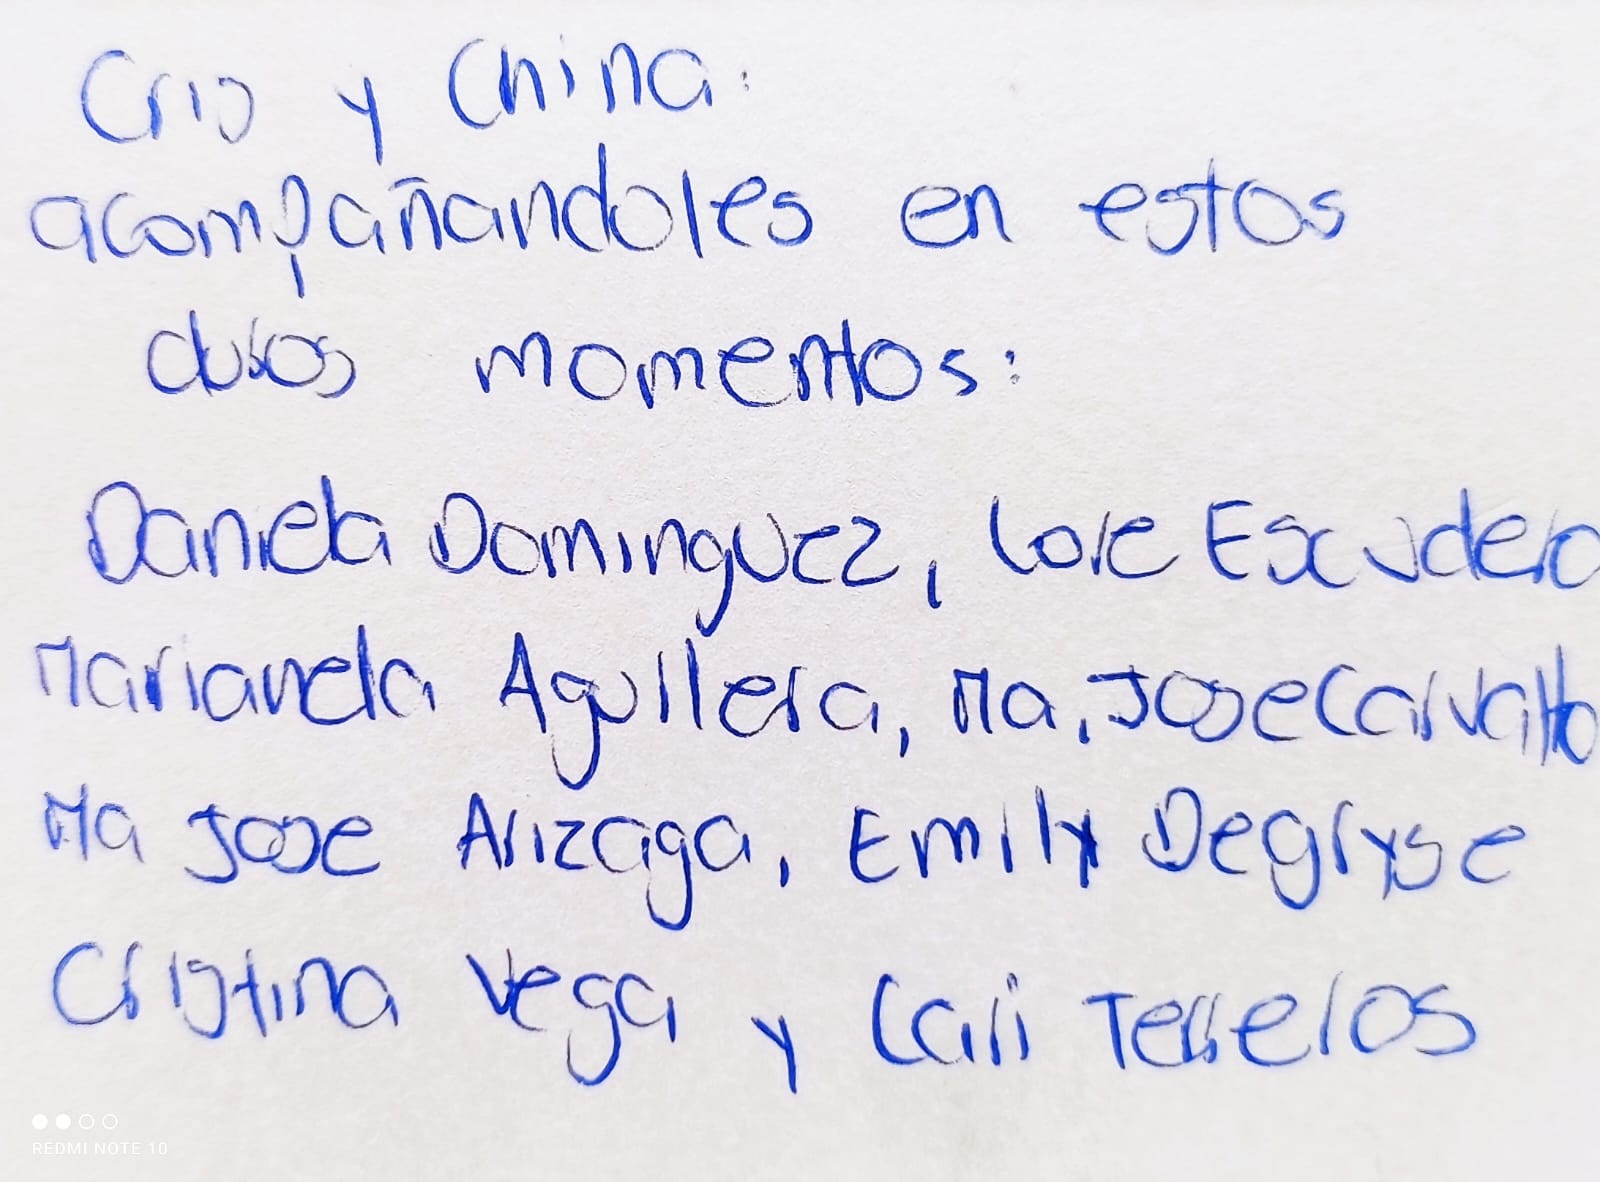 Cris y China:
acompañandoles en estos
duros momentos:
Daniela Dominguez, Lore Escudero
Marianela Aguilera, Ma. Jose Carvallo
Ma Jose Arizaga, Emily Degryse
Cristina Vega y Cari Terreros
REDMI NOTE 10